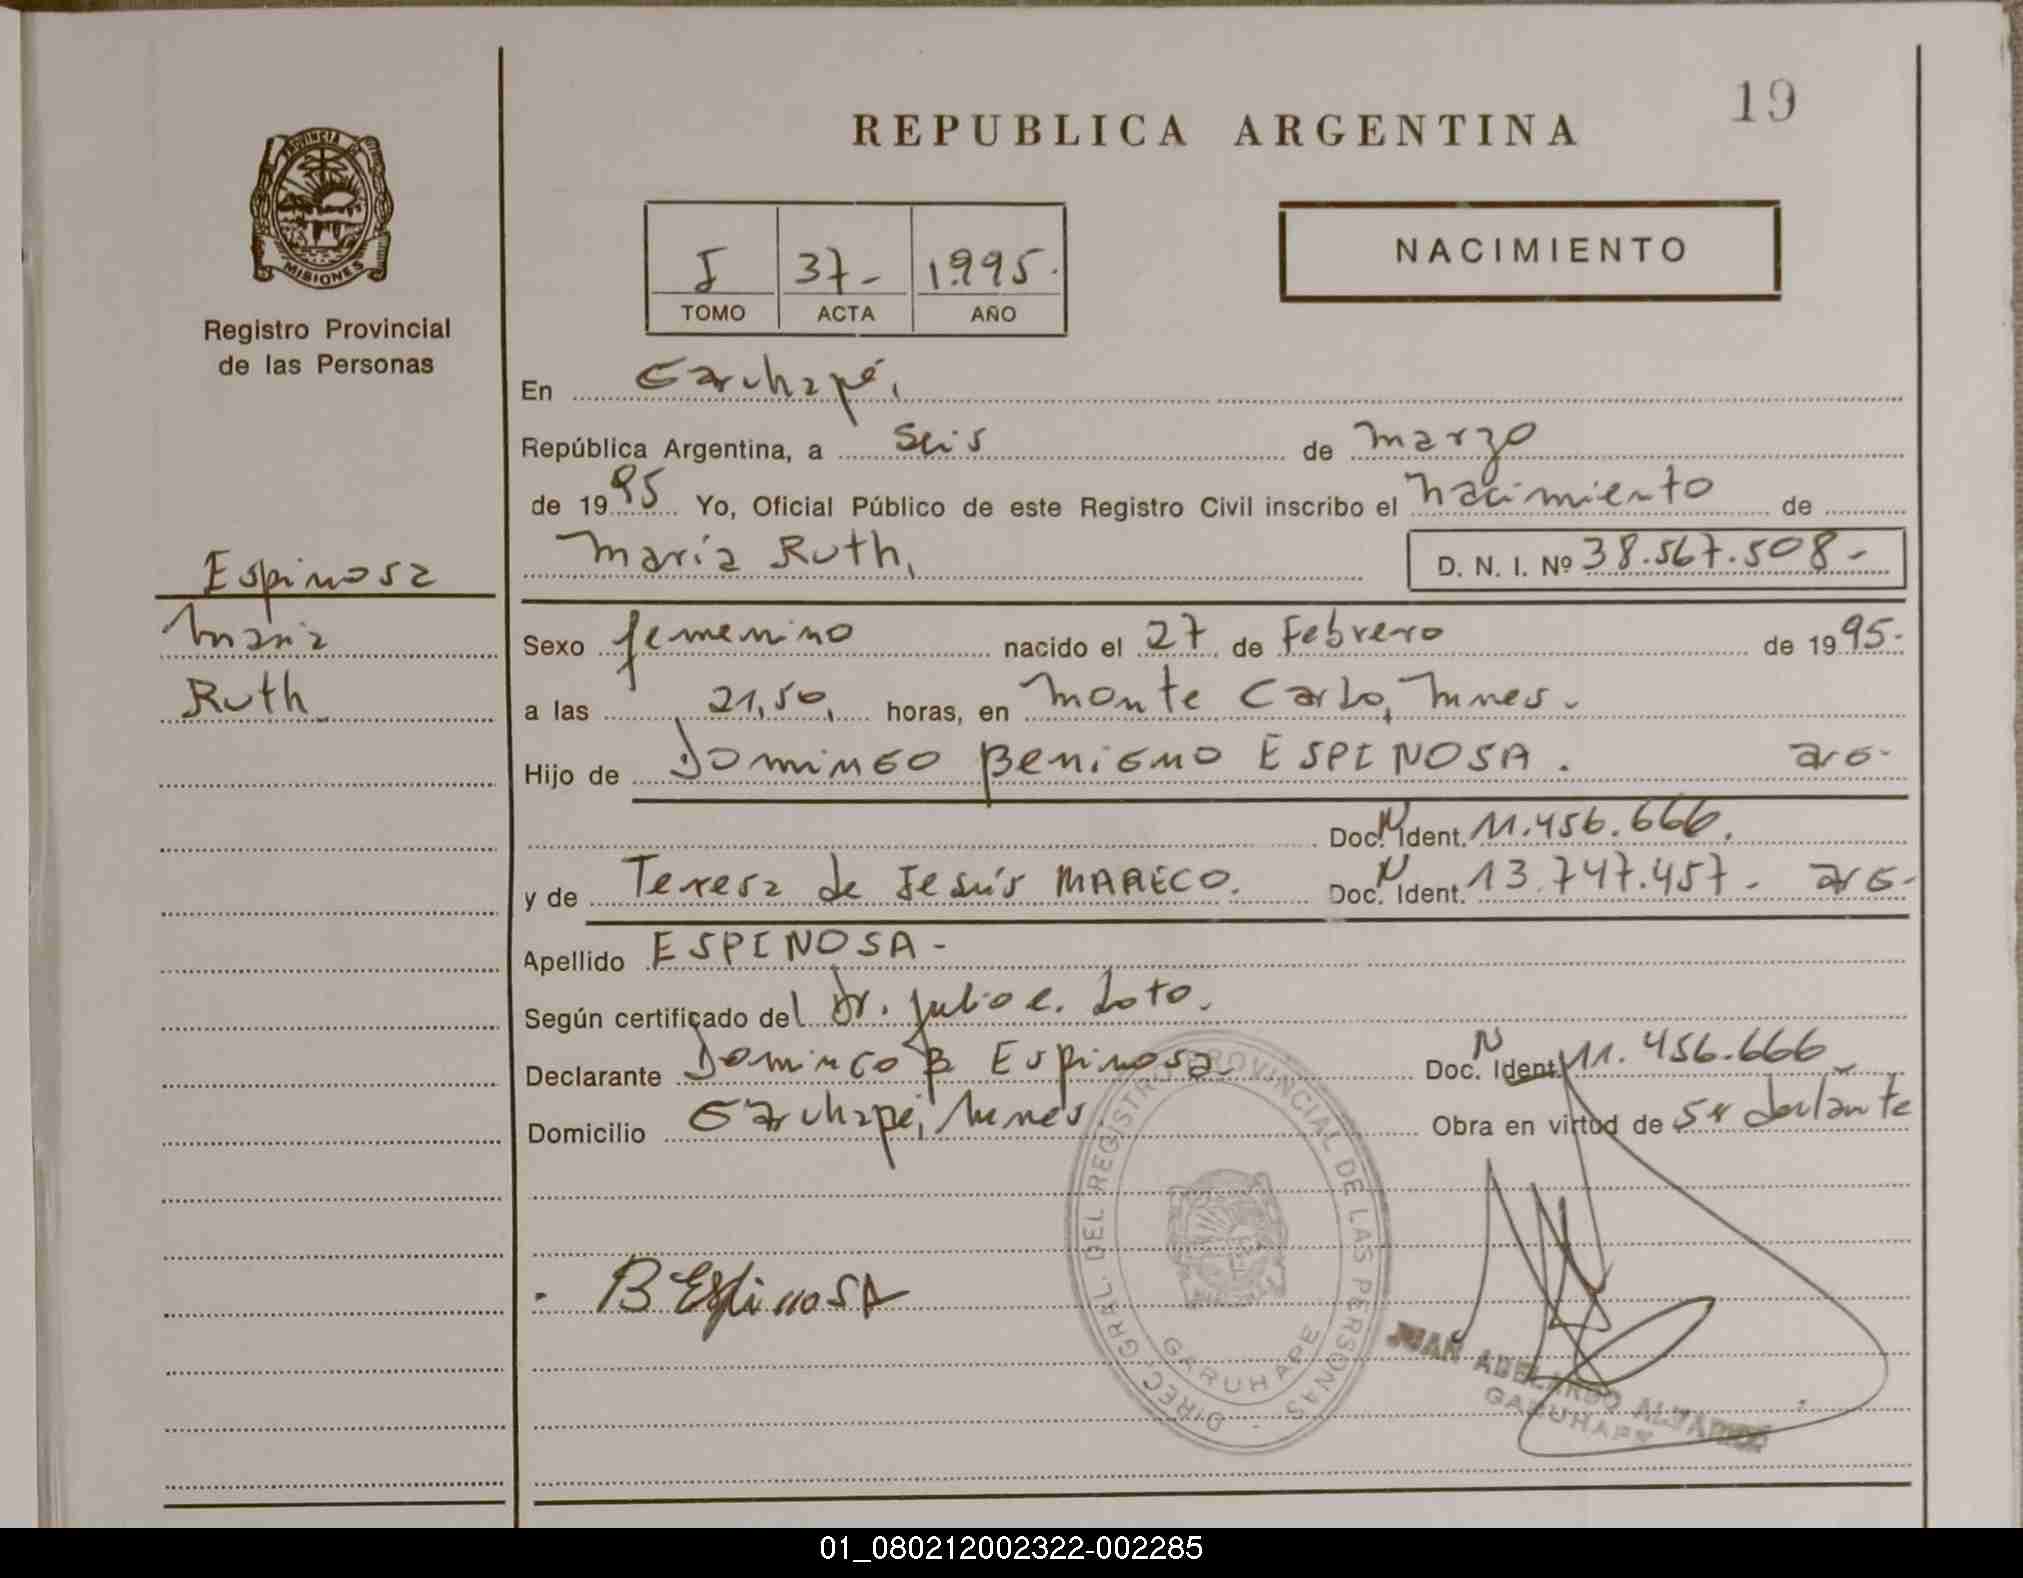 19
REPUBLICA ARGENTINA
PROVINCIA DE
MISIONES
Registro Provincial
de las Personas
NACIMIENTO
I 37- 1.995.
TOMO ACTA AÑO
En Garuhapé,
República Argentina, a seis de marzo
de 1995 Yo, Oficial Público de este Registro Civil inscribo el nacimiento de
María Ruth, D. N. I. Nº 38.567.508-
Espinosa
María
Ruth
Sexo femenino nacido el 27 de Febrero de 1995.
a las 21,50, horas, en Monte Carlo, Mnes.
Hijo de Domingo Benigno ESPINOSA. arg.
Doc. N Ident. 11.456.666.
y de Teresa de Jesús MARECO. Doc. N Ident. 13.747.457- arg-
Apellido ESPINOSA-
Según certificado del Dr. Julio E. Loto.
Declarante Domingo B Espinosa. Doc. N Ident. 11.456.666
Domicilio Garuhapé, Mnes. Obra en virtud de ser declarante
B EspinoSA
DIREC. GRAL. DEL REGISTRO PROVINCIAL DE LAS PERSONAS
GARUHAPE
JUAN ADELARDO
GARUHAPE
01_080212002322-002285